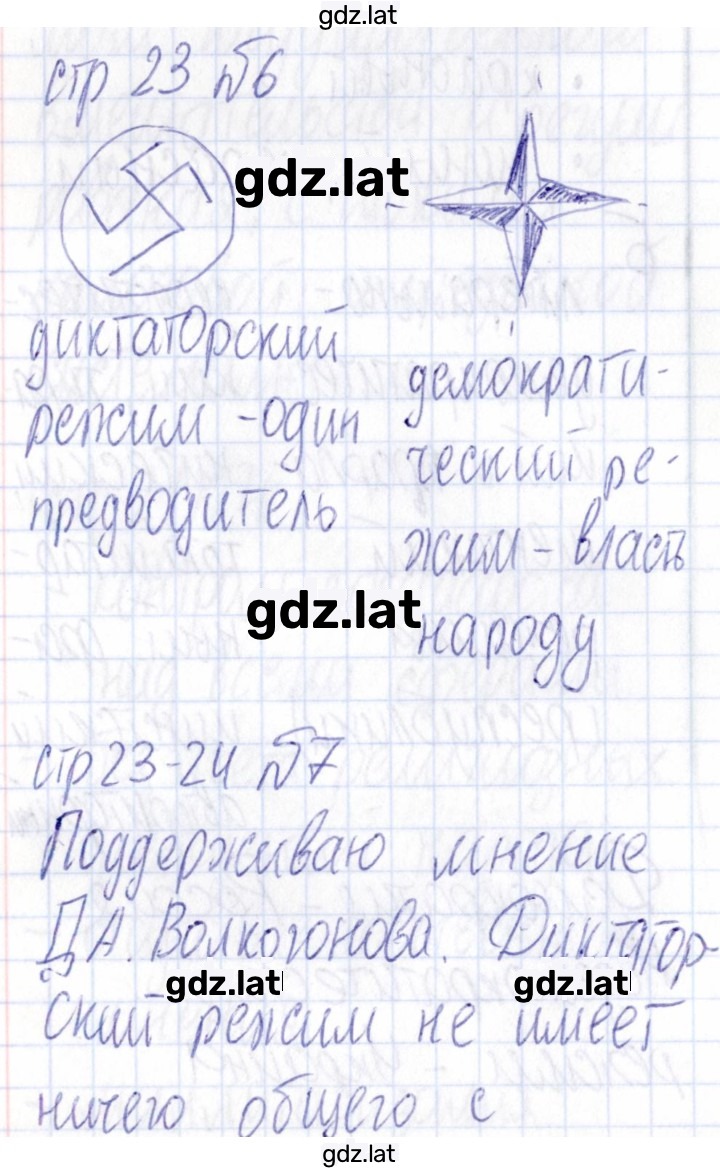 gdz.lat
стр 23 №6
gdz.lat
диктаторский
режим - один
предводитель
демократи-
ческий ре-
жим - власть
народу
gdz.lat
стр 23-24 №7
Поддерживаю мнение
Д.А. Волкогонова. Диктатор-
gdz.lat gdz.lat
ский режим не имеет
ничего общего с
gdz.lat